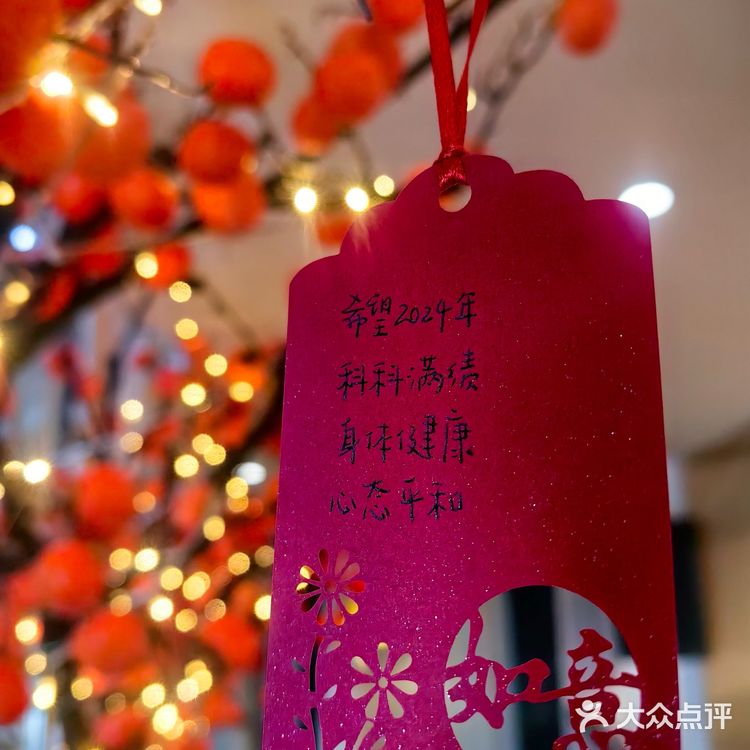 希望2024年
科科满绩
身体健康
心态平和
如意
大众点评